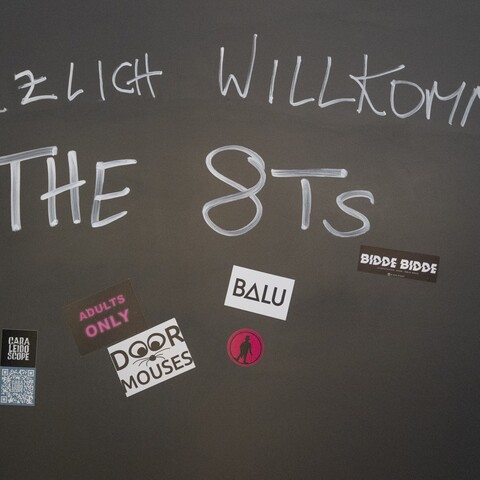 ZLICH WILLKOMM
THE 8Ts
BIDDE BIDDE
BALU
ADULTS
ONLY
DOOR
MOUSES
CARA
LEIDO
SCOPE